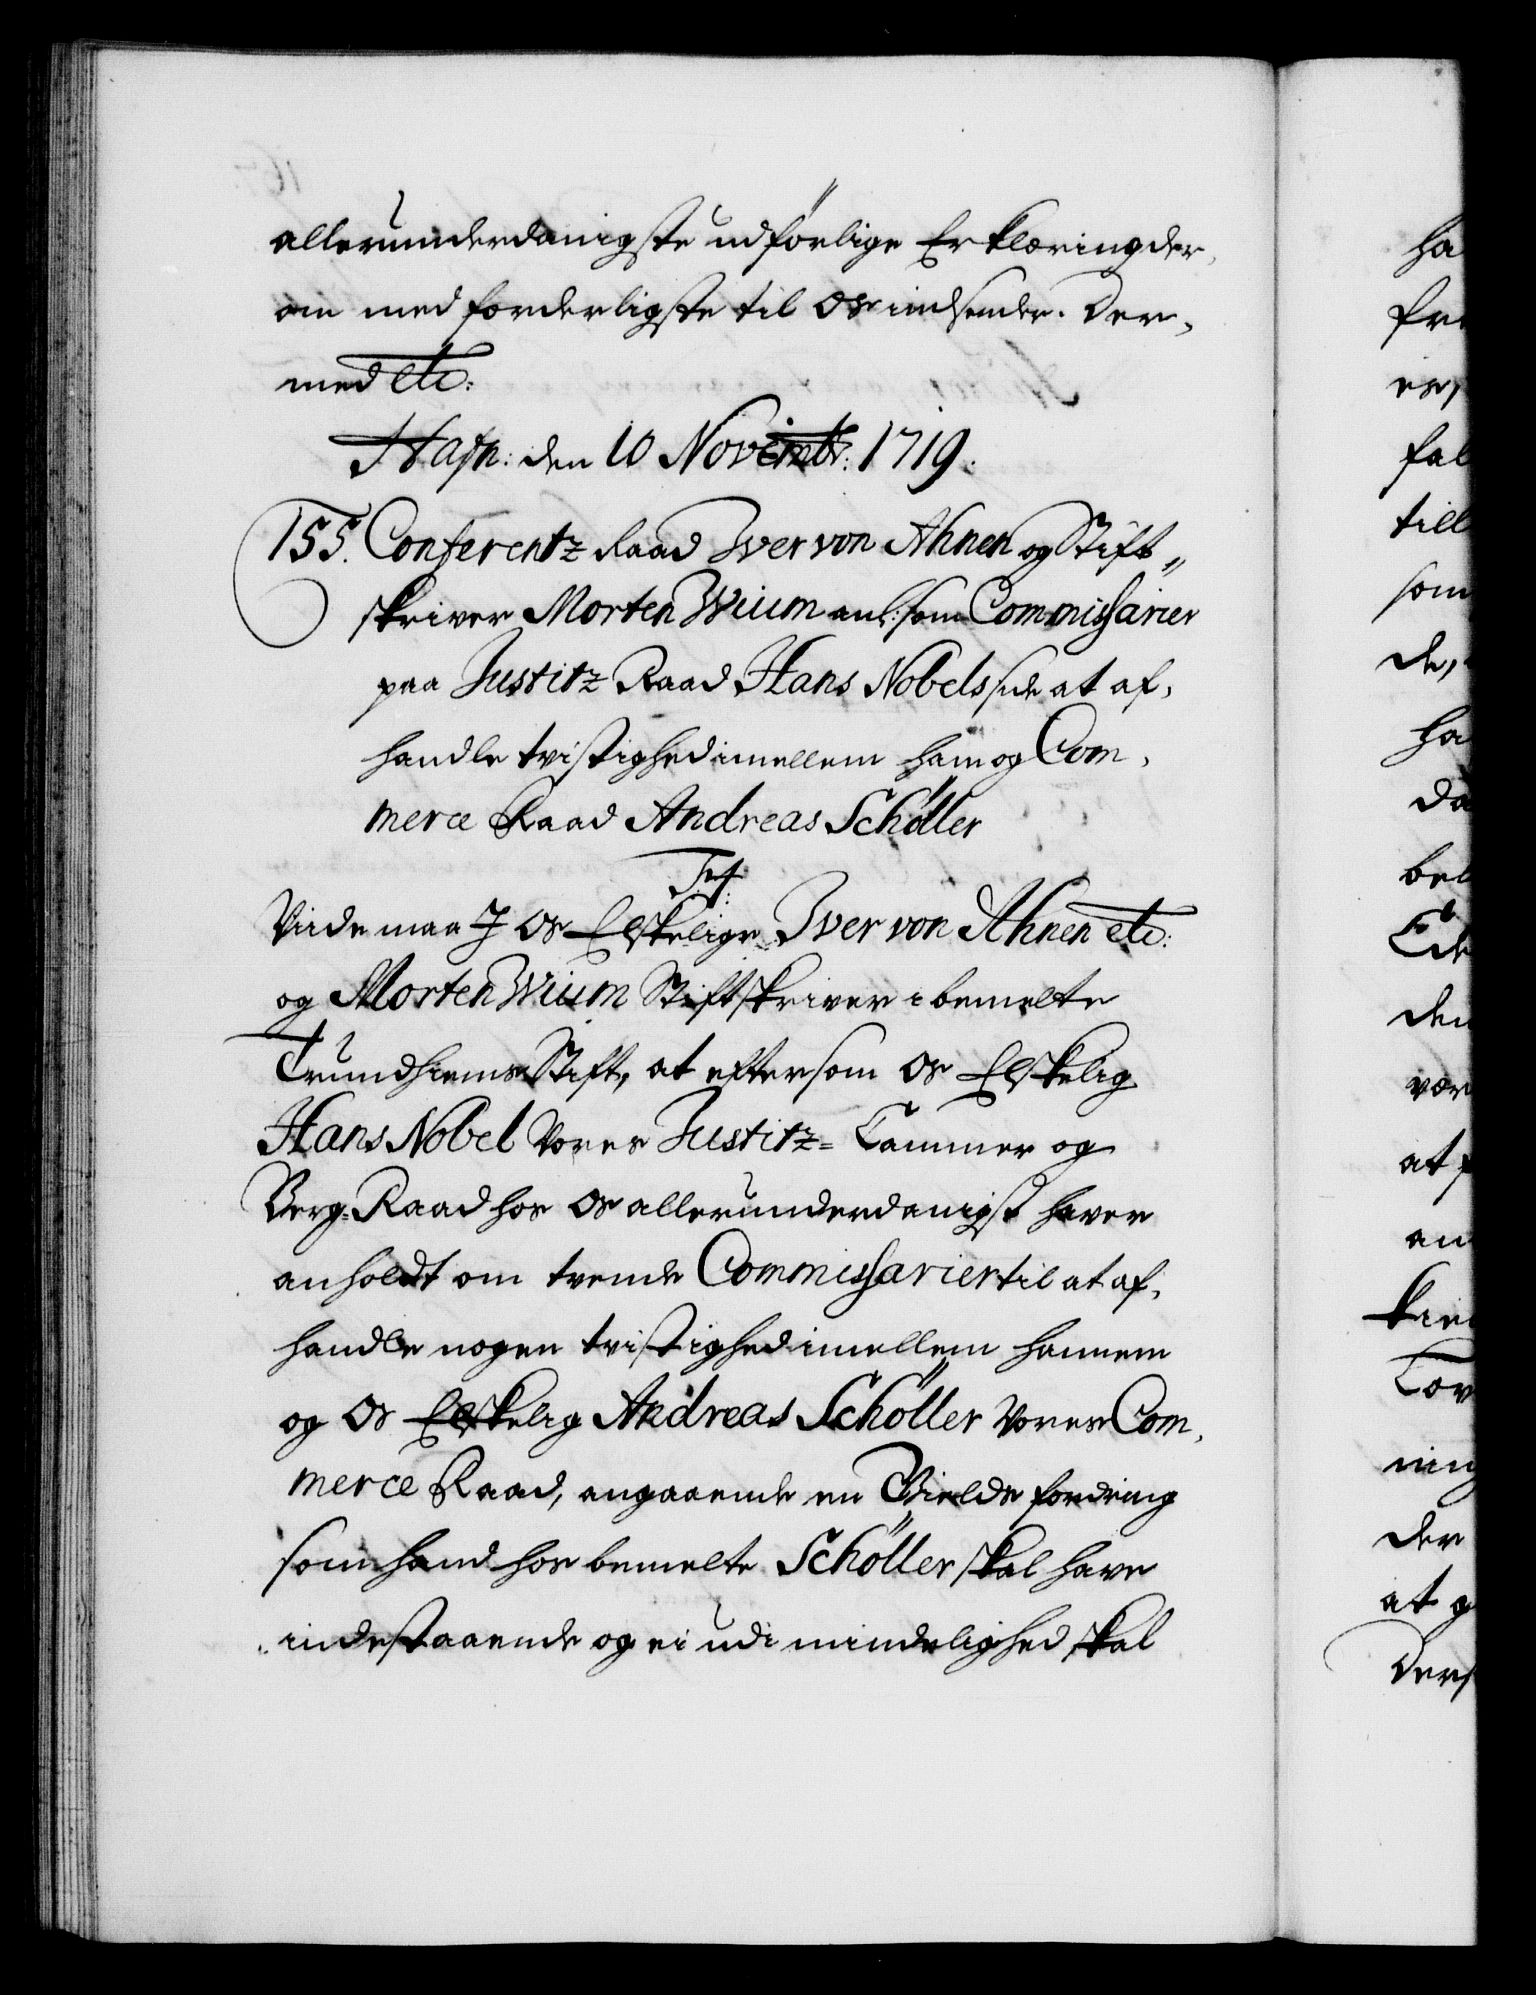 allerunderdanigste udförlige Erklæring der,
om med forderligste til Os indsender. Der,
med etc:
Hafn: den 10 Novembr: 1719.
155. Conferentz Raad Iver von Ahnen og Stift„
skriver Morten Wium anl: som Commissarier
paa Justitz Raad Hans Nobels side at af,
handle tvistighed imellem ham og Com,
merce Raad Andreas Schöller
F 4.
Viide maa I Os Elskelige Iver von Ahnen etc:
og Morten Wium Stiftskriver i bemelte
Trundhiems Stift, at eftersom Os Elskelig
Hans Nobel Vores Justitz= Cammer og
Berg-Raad hos Os allerunderdanigst haver
anholdt om tvende Commissarier til at af,
handle nogen tvistighed imellem hannem
og Os Elskelig Andreas Schöller Vores Com,
merce Raad, angaaende en Gields fordring
som hand hos bemelte Schöller skal have
indestaaende og ei udi mindelighed skal
ha
fre
er,
fal
till
som
de,
ha
da
bel
Ede
den
vær
at f
an
skie
Lov
ning
der
at g
Ders